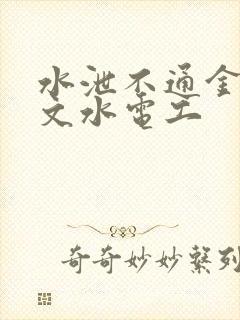 水泄不通金
文水電工
奇奇妙妙繫列